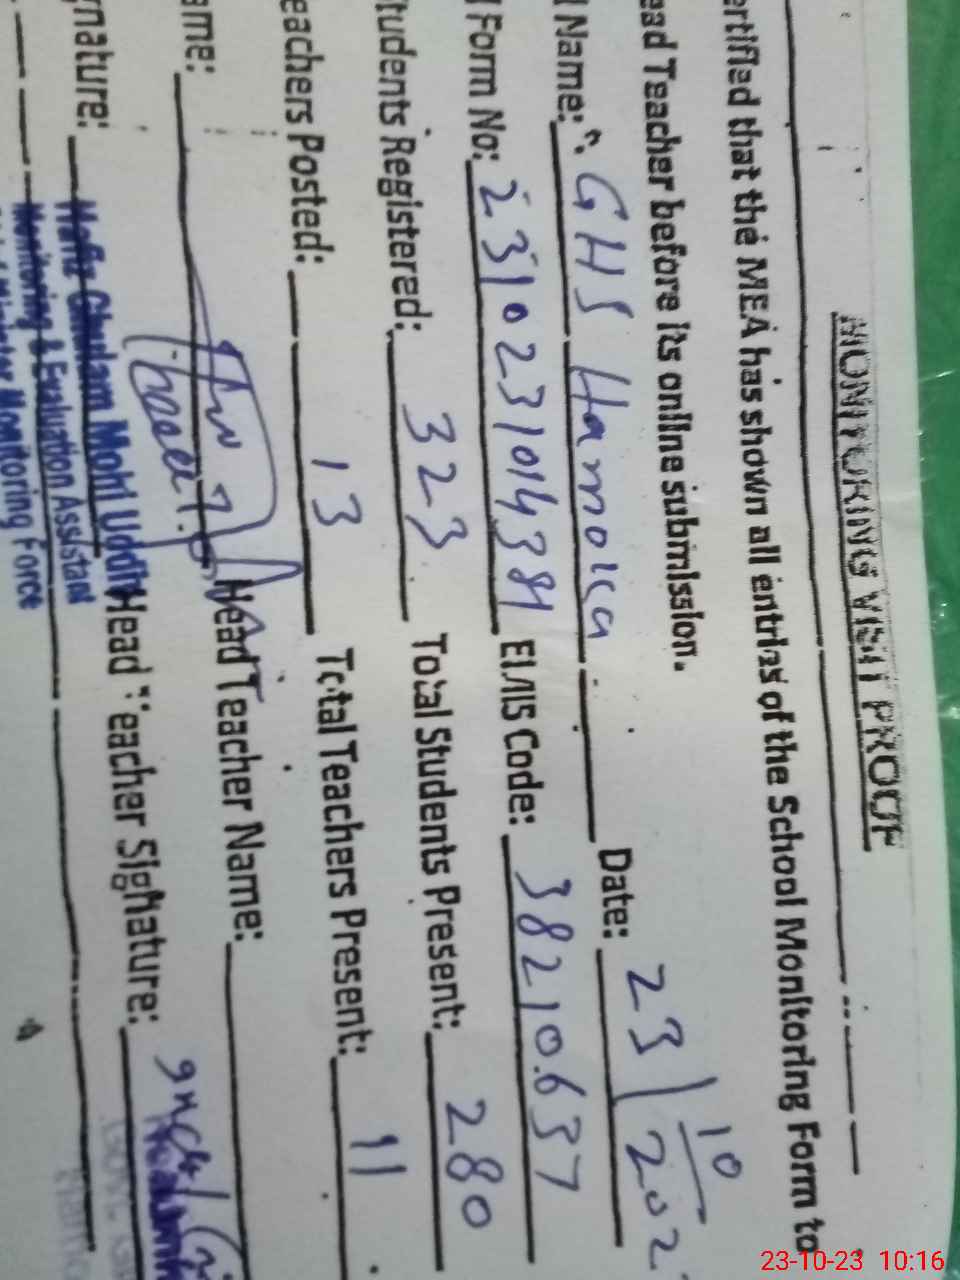 MONITORING VISIT PROOF
ertified that the MEA has shown all entries of the School Monitoring Form to
ead Teacher before its online submission.
l Name: GHS Hamoka Date: 23/10/202
l Form No: 231023101438 EMIS Code: 38210637
tudents Registered: 323 Total Students Present: 280
eachers Posted: 13 Total Teachers Present: 11
ame: Head Teacher Name:
gnature: Hafiz Ghulam Mohi Uddin Head Teacher Signature:
Monitoring & Evaluation Assistant
Monitoring Force
23-10-23 10:16